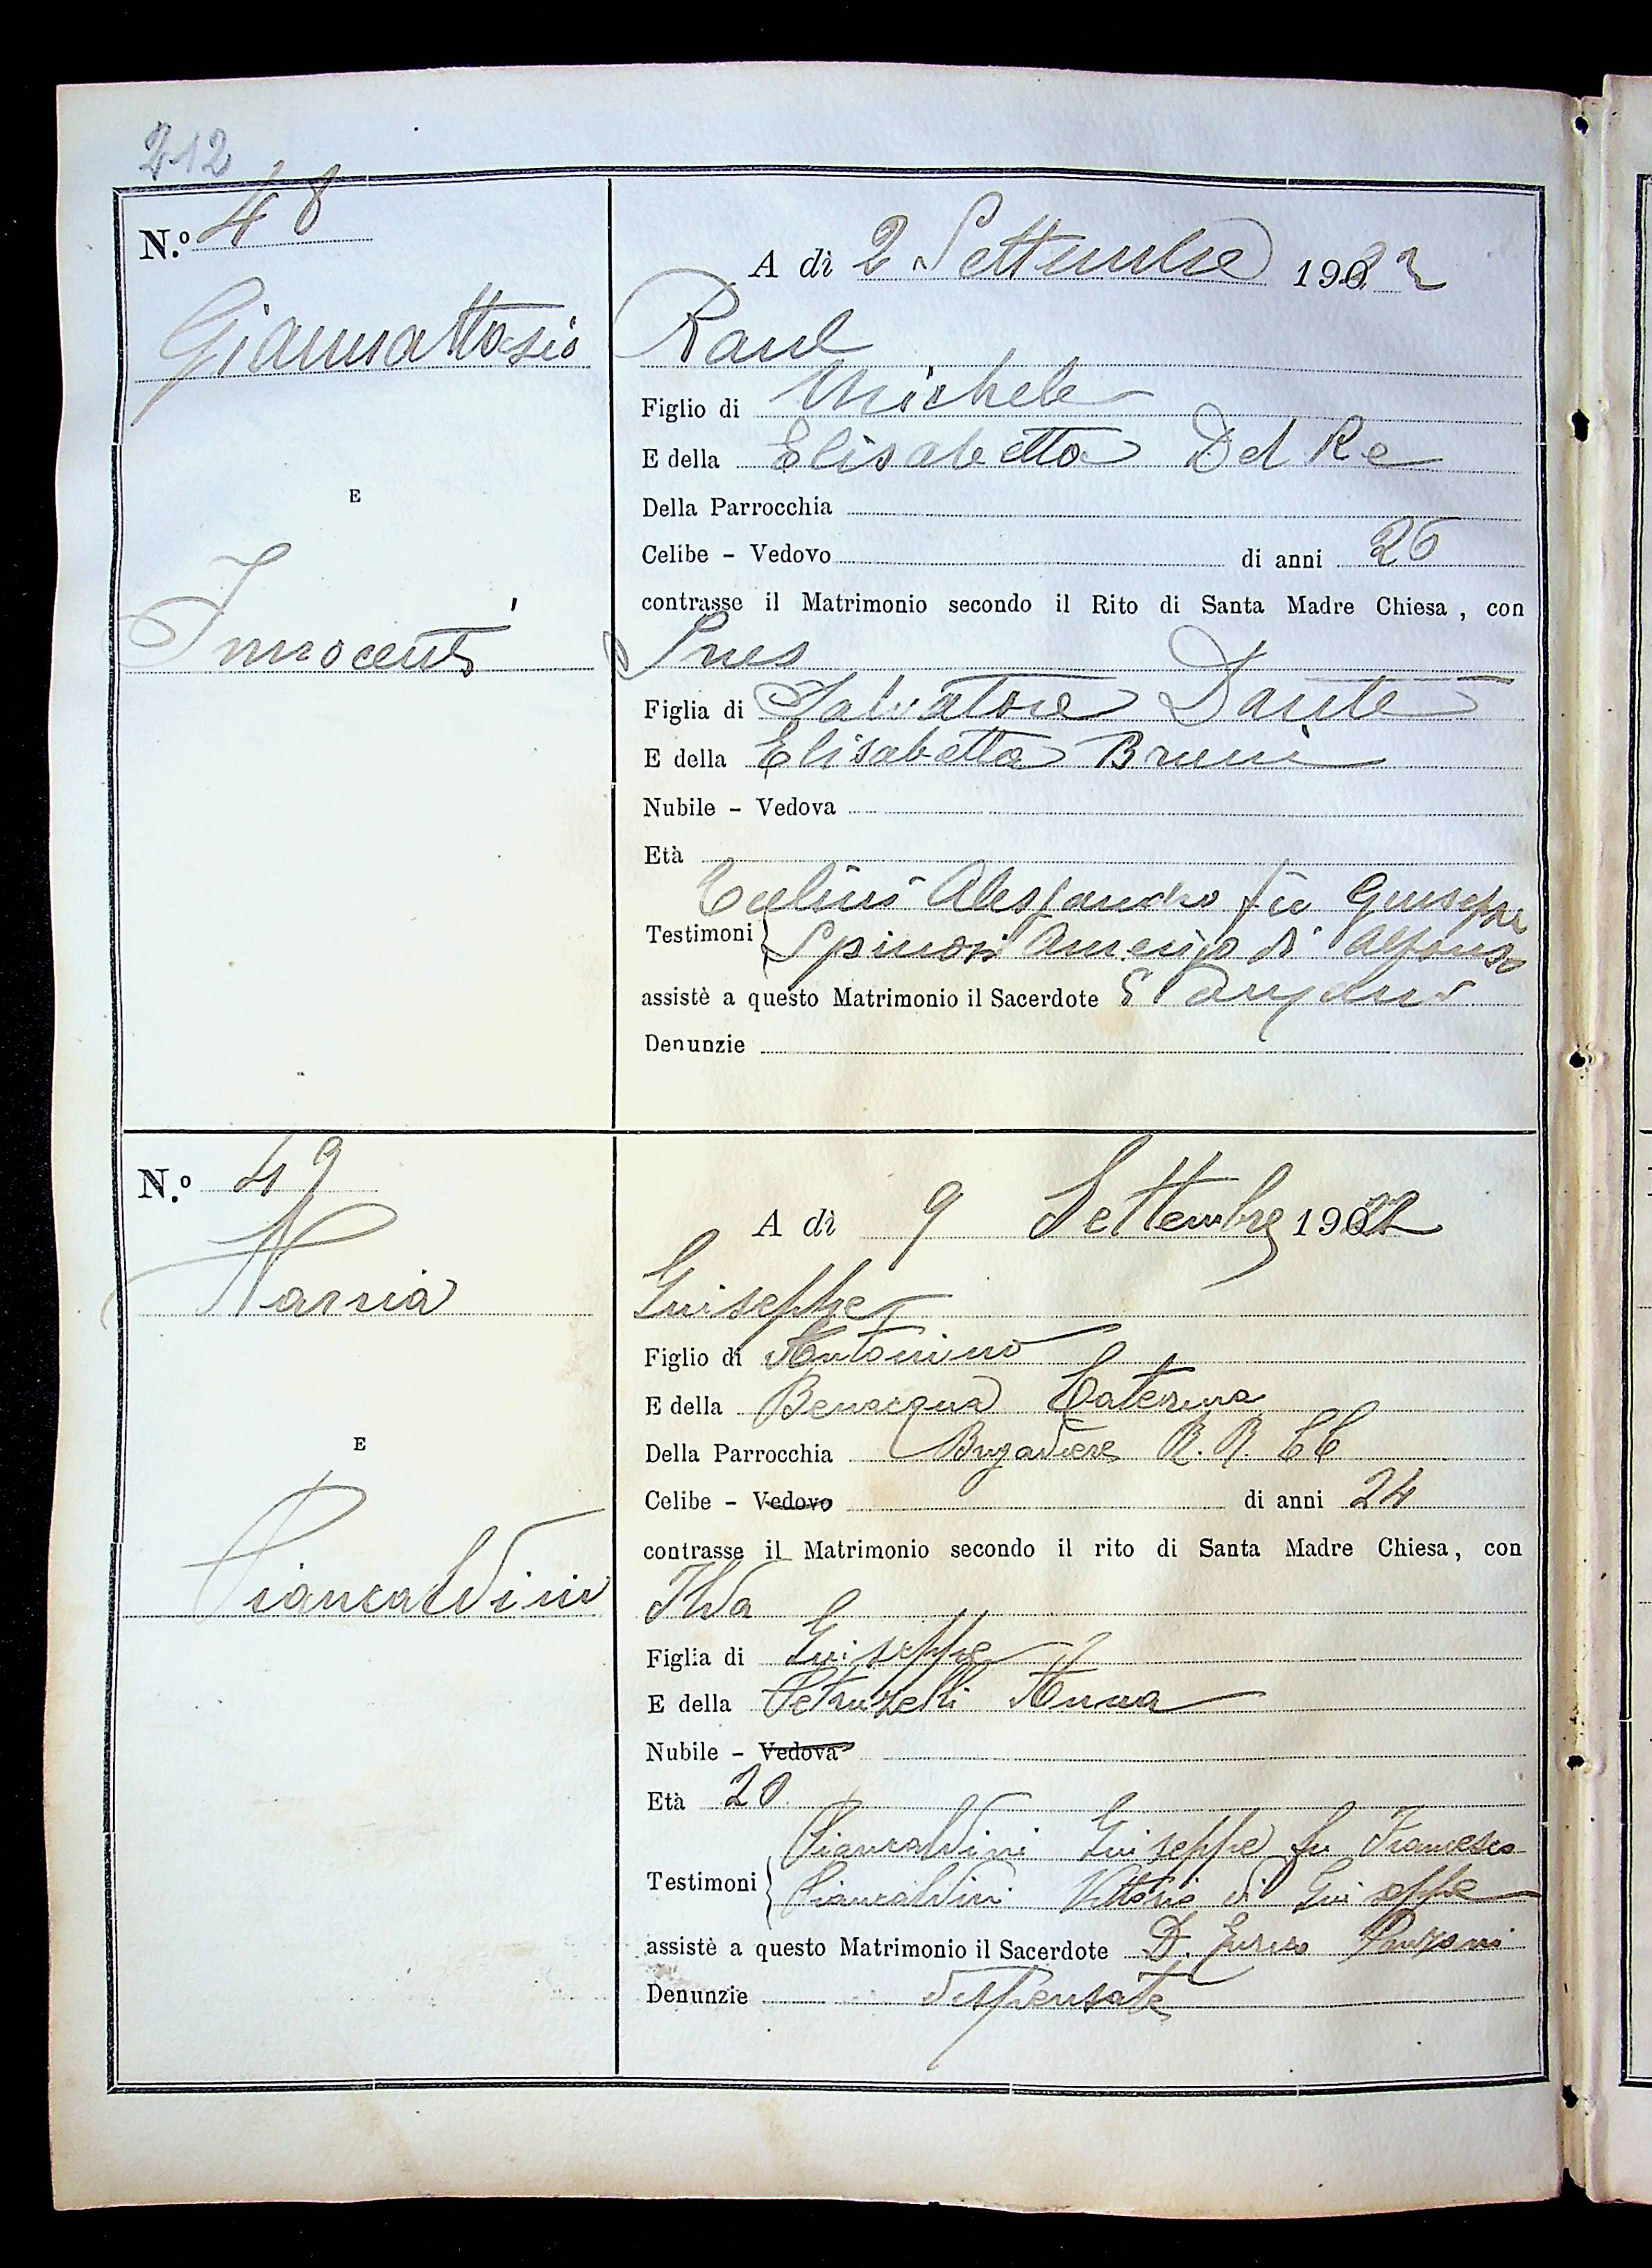 212
N.º 48
A dì 2 Settembre 1922
Giannattasio
Raul
Figlio di Michele
E della Elisabetta Del Re
Della Parrocchia
E
Celibe - Vedovo di anni 26
contrasse il Matrimonio secondo il Rito di Santa Madre Chiesa, con
Innocenti
Ines
Figlia di Salvatore Dante
E della Elisabetta Bruni
Nubile - Vedova
Età
Alessandro fu Giuseppe
Testimoni Amerigo di Alfonso
assistè a questo Matrimonio il Sacerdote
Denunzie
N.º 49
A dì 9 Settembre 1922
Giuseppe
Figlio di Antonino
E della Caterina
E
Della Parrocchia Brigadiere R. R. CC
Celibe - Vedovo di anni 24
contrasse il Matrimonio secondo il rito di Santa Madre Chiesa, con
Piancaldini
Ilda
Figlia di Giuseppe
E della Petruzelli Anna
Nubile - Vedova
Età 20
Piancaldini Giuseppe fu Francesco
Testimoni Piancaldini Vittorio di Giuseppe
assistè a questo Matrimonio il Sacerdote D. Panzani
Denunzie dispensate